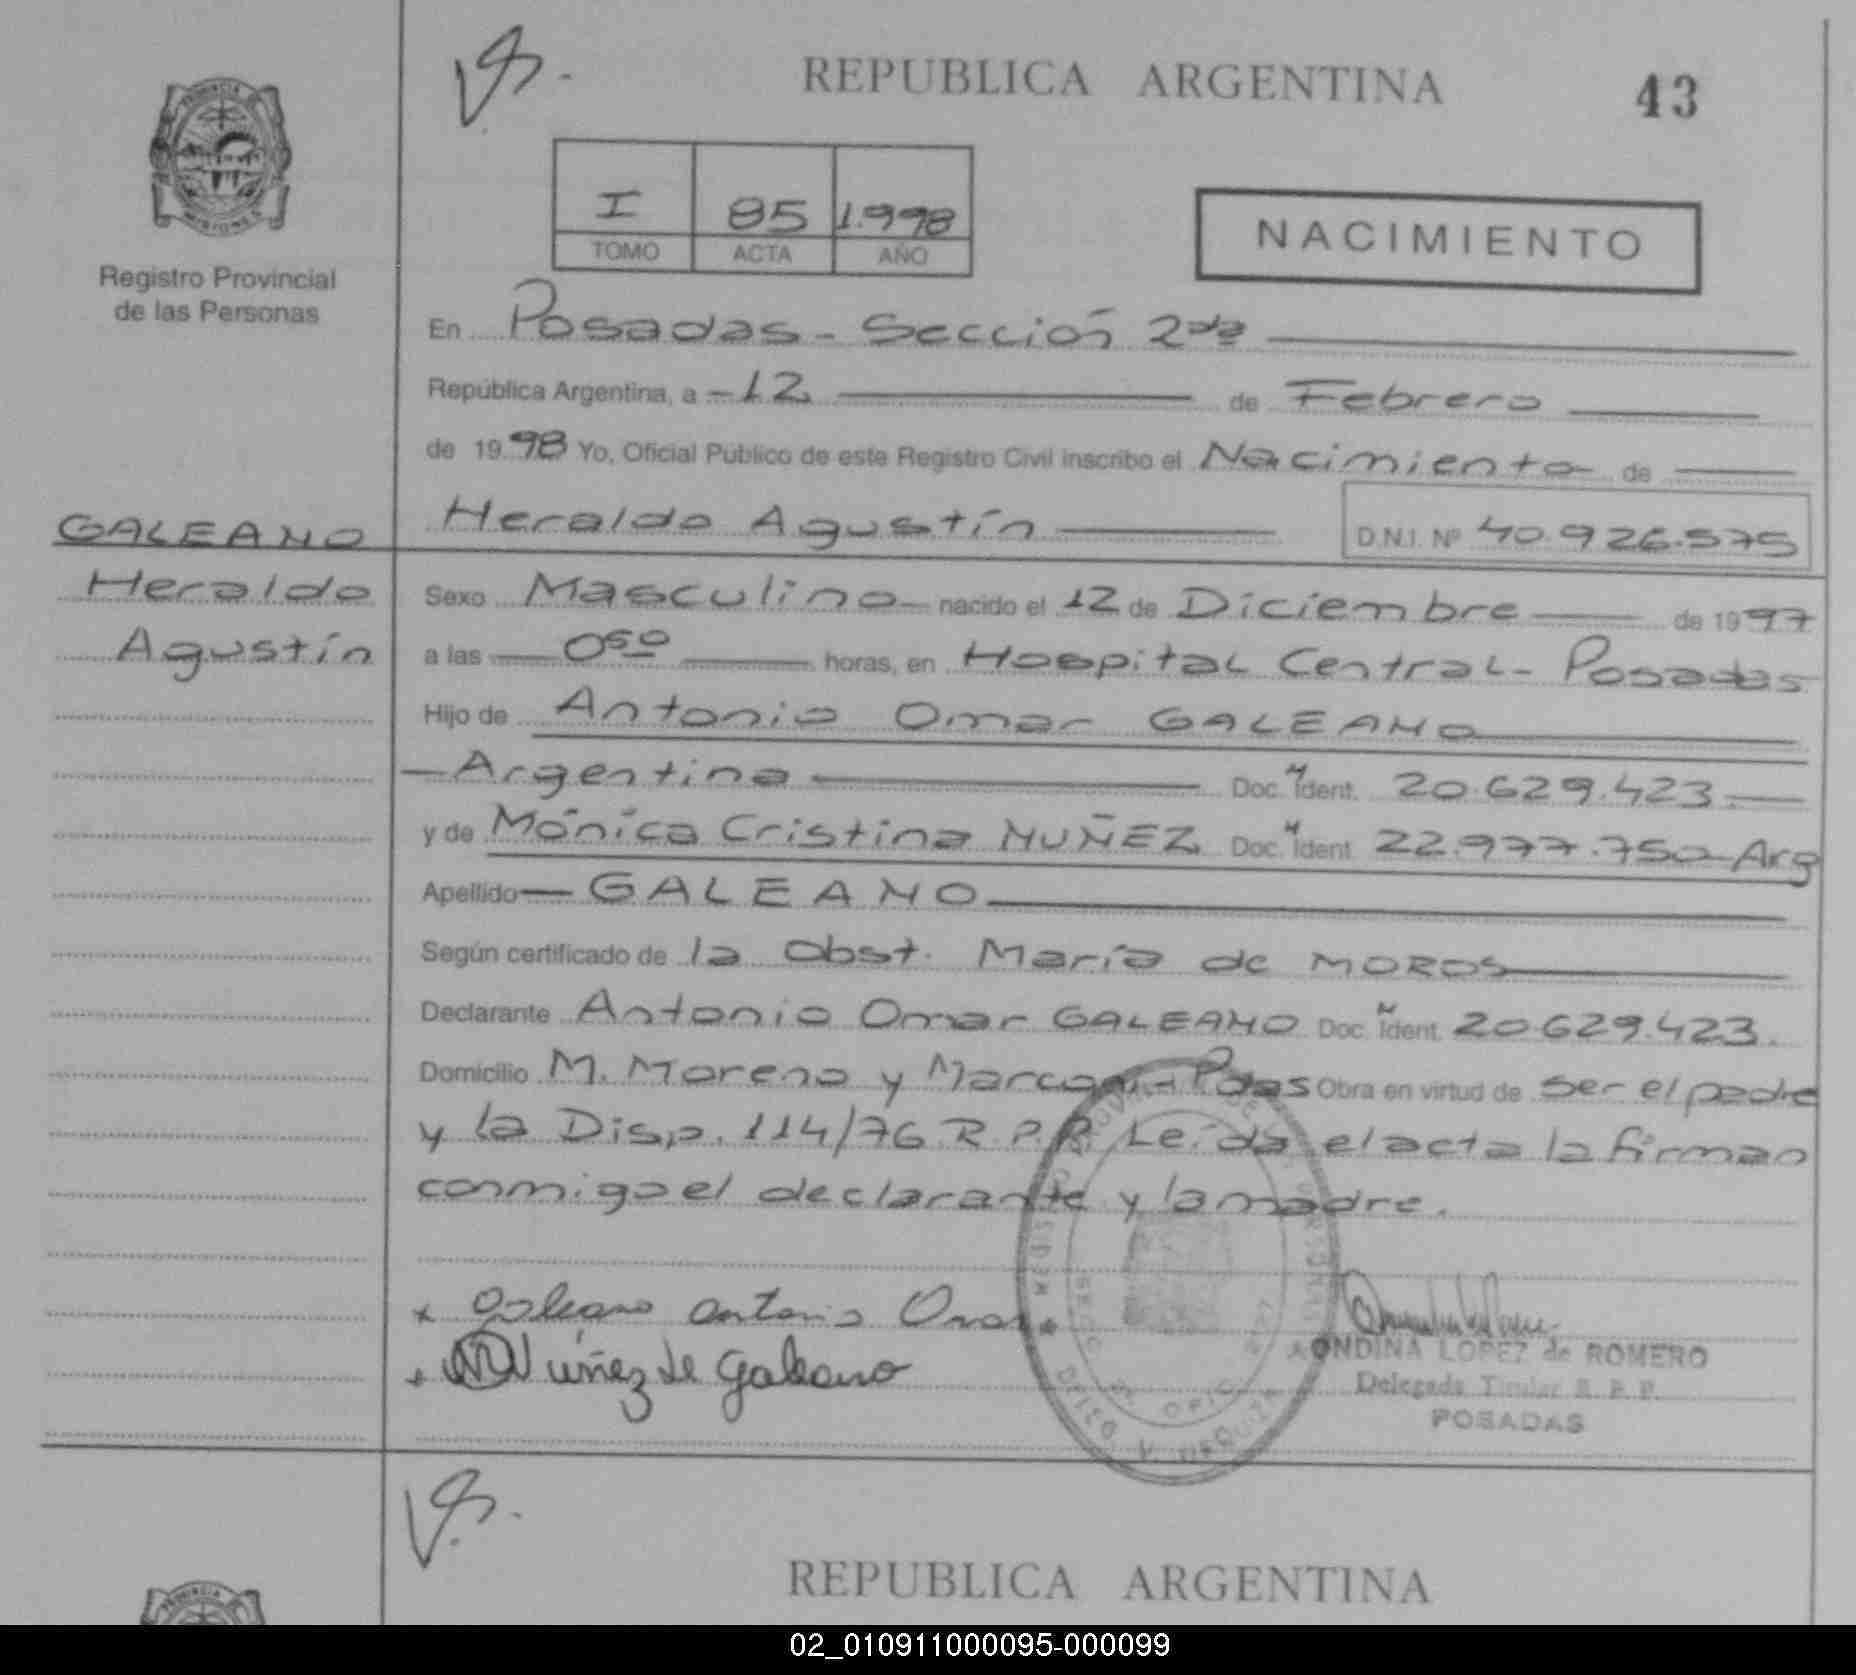 REPUBLICA ARGENTINA
43
PROVINCIA
MISIONES
Registro Provincial
de las Personas
I 85 1.998
TOMO ACTA AÑO
NACIMIENTO
En Posadas - Sección 2da
República Argentina, a - 12 de Febrero
de 1998 Yo, Oficial Público de este Registro Civil inscribo el Nacimiento de
Heraldo Agustín D.N.I. Nº 40.926.575
GALEANO
Heraldo
Agustín
Sexo Masculino nacido el 12 de Diciembre de 1997
a las 050 horas, en Hospital Central - Posadas
Hijo de Antonio Omar GALEANO
- Argentina Doc. Ident. 20.629.423
y de Mónica Cristina NUÑEZ Doc. Ident. 22.977.750 - Arg
Apellido GALEANO
Según certificado de la Obst. María de MOROS
Declarante Antonio Omar GALEANO Doc. Ident. 20.629.423.
Domicilio M. Moreno y Marconi - Pdas Obra en virtud de ser el padre
y la Disp. 114/76 R.P.P. Leída el acta la firman
conmigo el declarante y la madre.
Galeano Antonio Omar
Núñez de Galeano
ONDINA LOPEZ de ROMERO
Delegada Titular R. P. P.
POSADAS
REPUBLICA ARGENTINA
PROVINCIA
02_010911000095-000099